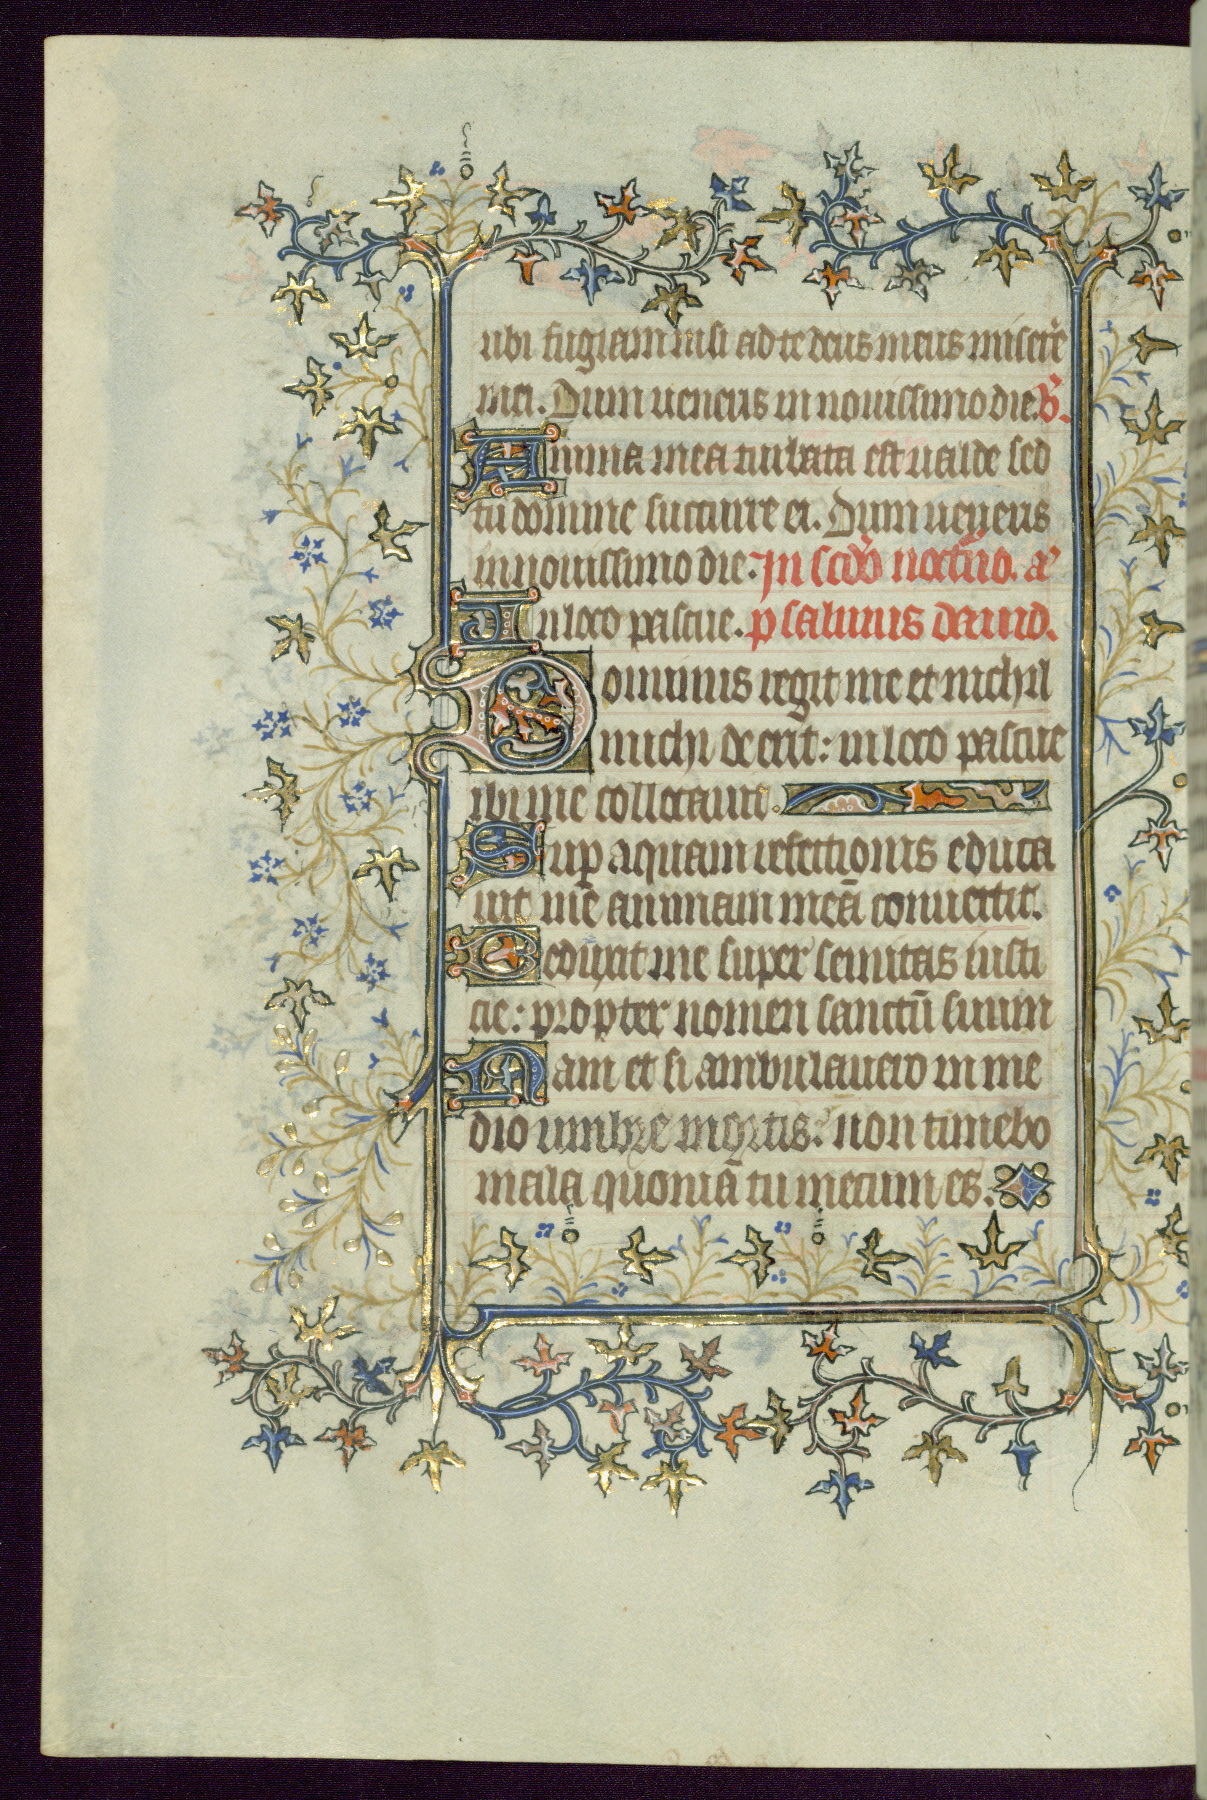 ubi fugiam nisi ad te deus meus misere᷑
mei. Dum ueneris in nouissimo die. V̉.
Anima mea turbata est ualde sed
tu domine succurre ei. Dum ueneris
in nouissimo die. In scd̉o noct̉no. a᷑
In loco pascue. psalmus dauid.
Dominus regit me et nichil
michi deerit: in loco pascue
ibi me collocauit.
Sup aquam refectionis educa
uit me animam meā conuertit.
Deduxit me super semitas iusti
cie: propter nomen sanctū suum
Nam et si ambulauero in me
dio umbre mortis: non timebo
mala quoniā tu mecum es.